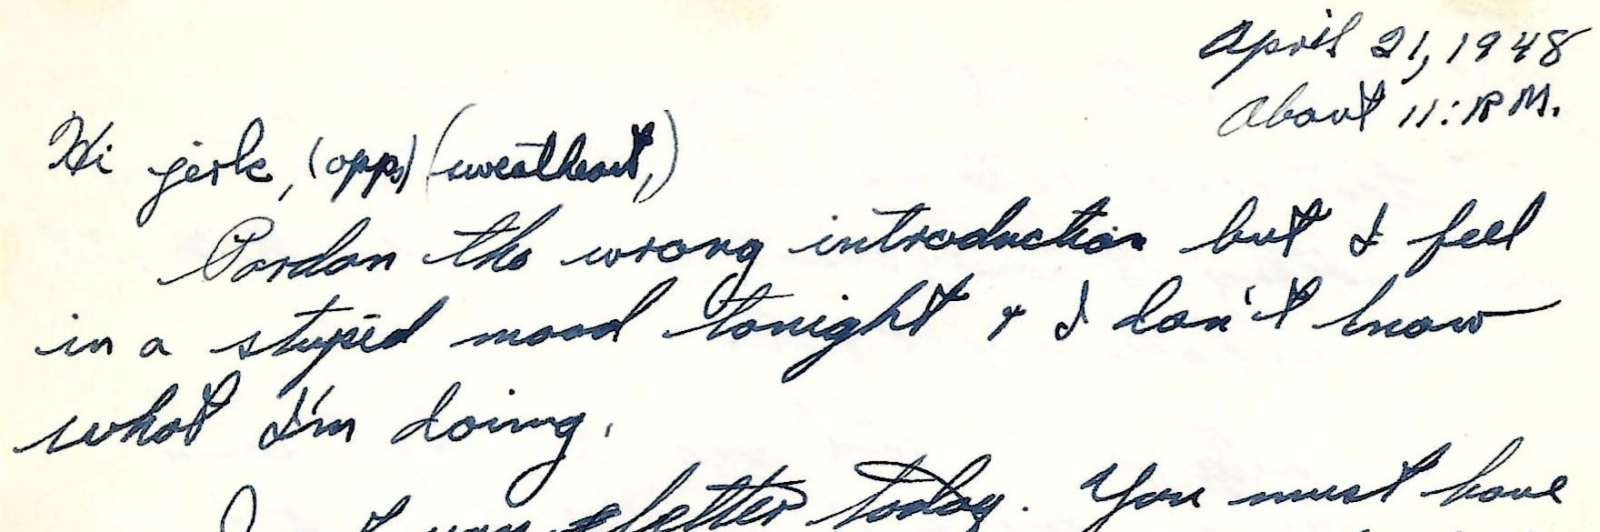 April 21, 1948
About 11: P.M.
Hi jerk, (opps) (sweatheart,)
Pardon the wrong introduction but I feel
in a stupid mood tonight & I don't know
what I'm doing.
letter today. You must have